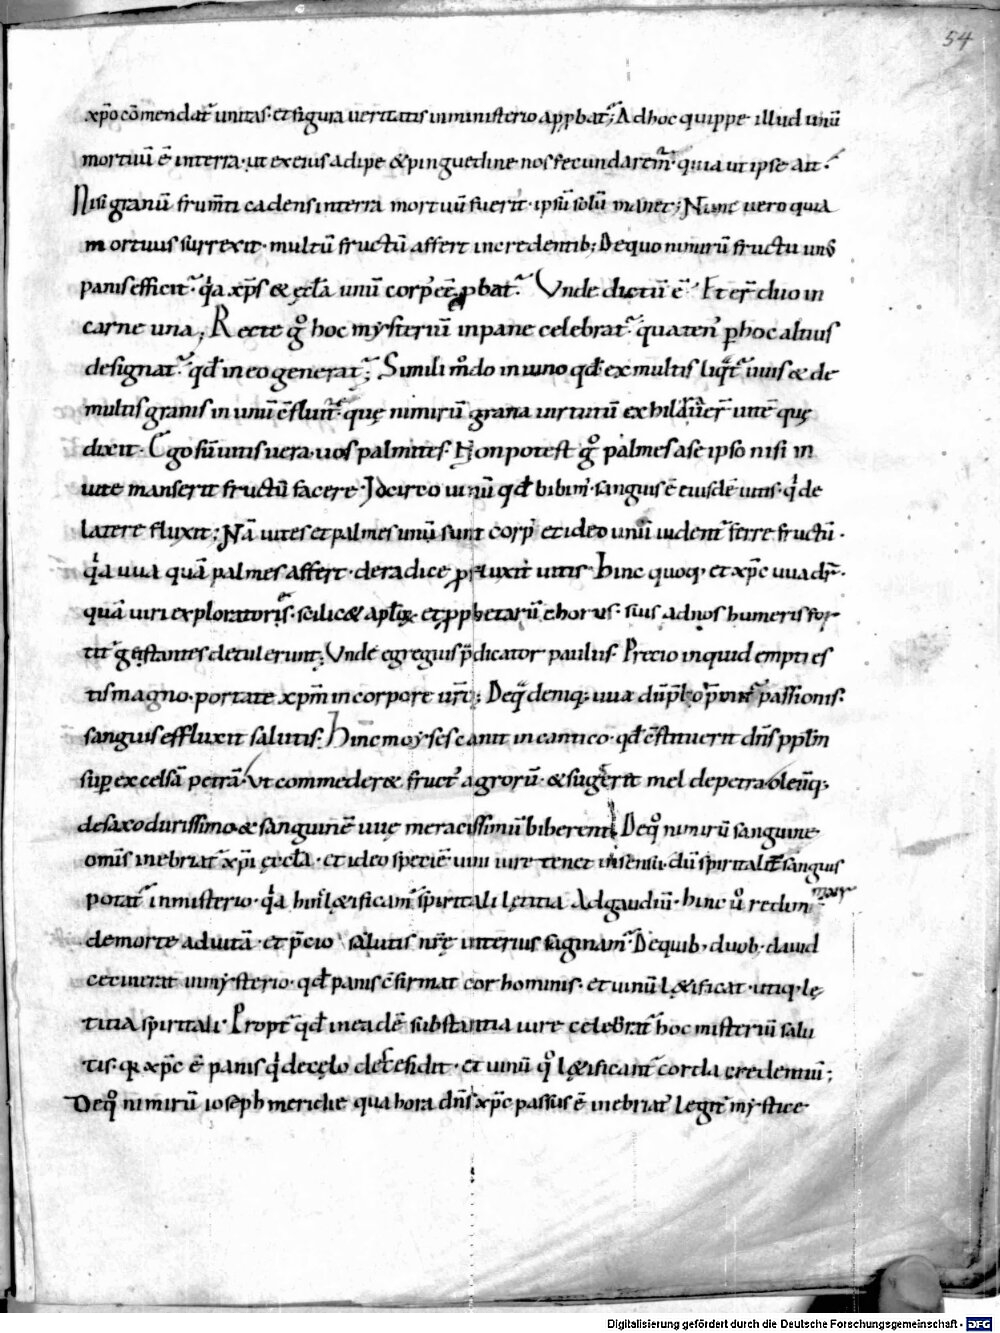 54
xp̄o cōmendat᷑ unitas· et figura ueritatis in ministerio app̱bat᷑; Ad hoc quippe illud unū
mortuū ē in terra· ut ex eius adipe & pinguedine nos fecundarem᷑· quia ut ipse ait·
Nisi granū frum̄ti cadens in terra mortuū fuerit· ipsū solū manet; Nunc uero quia
mortuus surrexit· multū fructū affert in credentib; De quo nimirū fructu un᷒
panis efficit᷑· q̇a xp̄s & ęccl̄a unū corp᷒ eē p̱bat᷑. Vnde dictū ē· Et er̄ duo in
carne una; Recte g̊ hoc mẏsteriū in pane celebrat᷑· quaten᷒ p̱ hoc altius
designat᷑ qd̄ in eo generat᷑; Simili m̊do in uino qd̄ ex multis liq̄t᷑ uuis & de
multis granis in unū c̄fluit᷑· quę nimirū grana uirtutū ex uite quę
dixit· Ego sū uitis uera· uos palmites· Non potest g̊ palmes a se ipso nisi in
uite manserit fructū facere· Idcirco uinū qd̄ bibim᷒· sanguis ē eiusdē uitis· q̇ de
latere fluxit; Nā uites et palmes unū sunt corp᷒ et ideo unū uident᷑ ferre fructū·
q̇a uua quā palmes affert· de radice p̱fluxit uitis· Hinc quoq; et xp̄c uua dr̄·
quā uiri exploratores· scilic& apl̄oꝝ et p̱phetarū chorus· suis ad nos humeris for-
tit᷑ gestantes detulerunt; Vnde egregius p̄dicator paulus· Precio inquid empti es
tis magno· portate xp̄m in corpore ur̄o; De q̊ deniq; uuæ passionis·
sanguis effluxit salutis· Hinc moẏses canit in cantico· qd̄ c̄stituerit dn̄s pplm̄
sup̱ excelsā petrā· Vt commeder& fruct᷒ agrorū· & suger&̄ mel de petra· oleūq;
de saxo durissimo & sanguinē uuę meracissimū biberent; De q̊ nimirū sanguine
om̄is inebriat᷑ xp̄i ęccl̄a· et ideo speciē uini iure tenet in sensu· dū spiritalit᷑ sanguis
potat᷑ in ministerio· q̇a hinc l&ificam᷑ spiritali lętitia Ad gaudiū· hinc ů redim
de morte ad uitā· et p̄cio salutis nr̄ę interius saginam᷑· De quib; duob· dauid
cecinerat in mẏsterio· qd̄ panis c̄firmat cor hominis· et uinū l&ificat· utiq· lę
titia spiritali· Propt᷑ qd̄ in eadē substantia iure celebrat᷑ hoc misteriū salu
tis· xp̄c ē panis q̇ de cęlo descendit· et uinū q̊ l&ificant᷑ corda credentiū;
De q̊ nimirū ioseph meridie qua hora dn̄s xp̄c passus ē inebriat᷒ legit᷑ mẏstice·
Digitalisierung gefördert durch die Deutsche Forschungsgemeinschaft - DFG